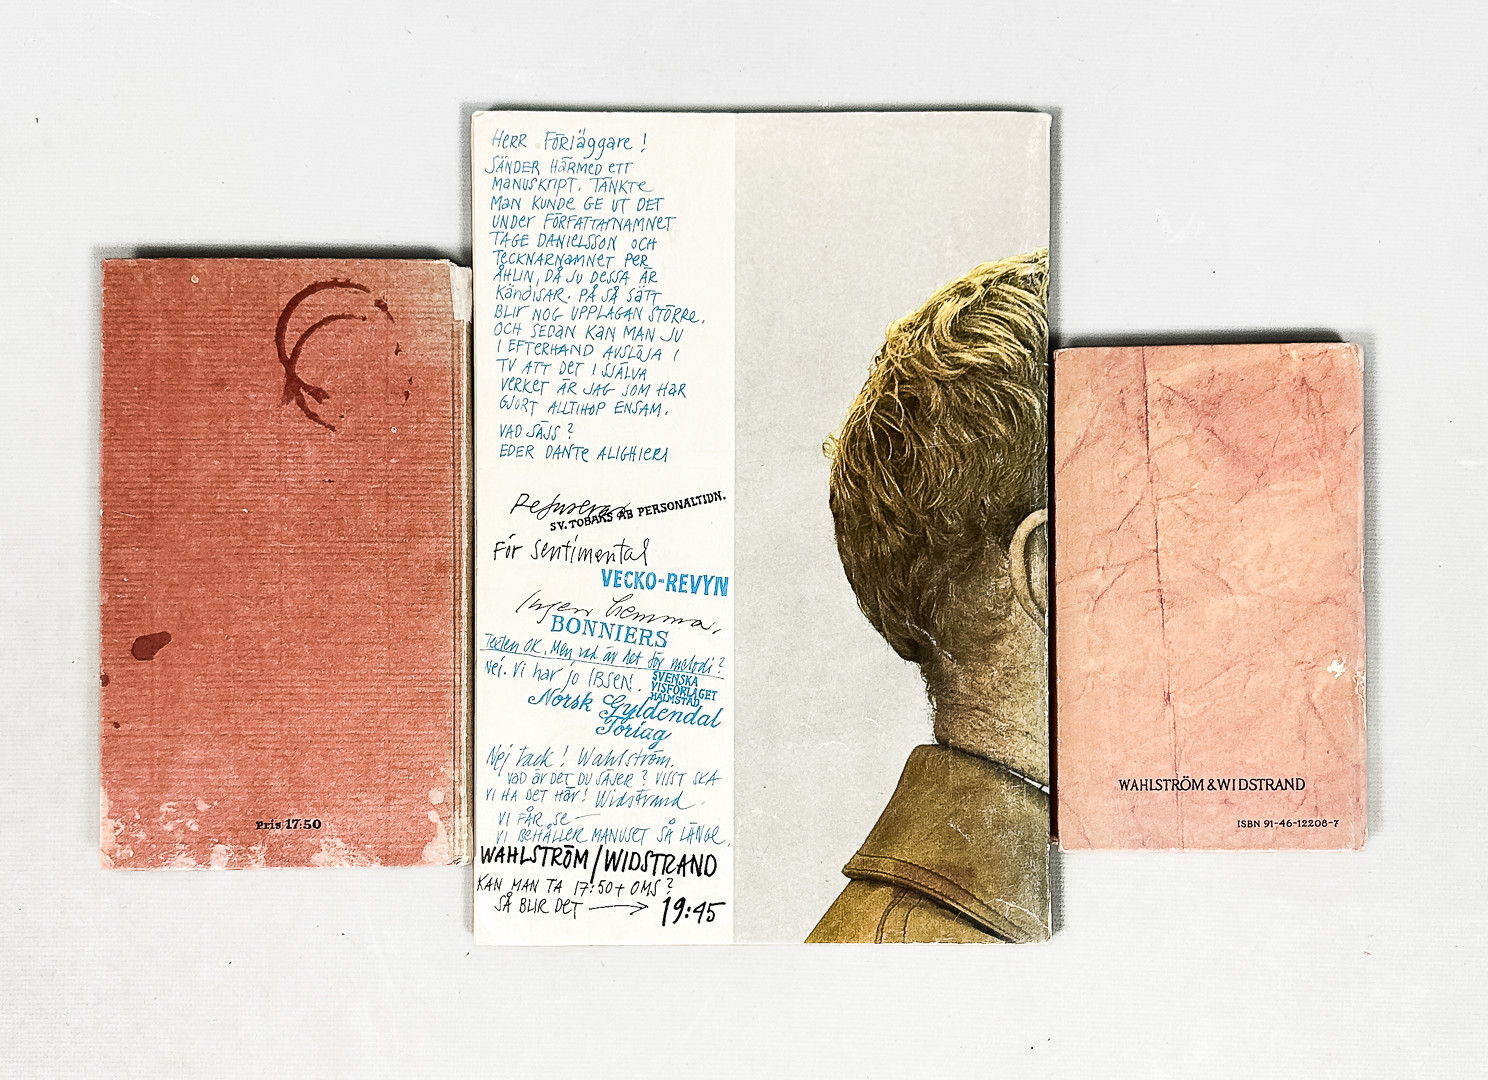 Pris 17:50
HERR FÖRLÄGGARE!
SÄNDER HÄRMED ETT
MANUSKRIPT. TÄNKTE
MAN KUNDE GE UT DET
UNDER FÖRFATTARNAMNET
TAGE DANIELSSON OCH
TECKNARNAMNET PER
ÅHLIN, DÅ JU DESSA ÄR
KÄNDISAR. PÅ SÅ SÄTT
BLIR NOG UPPLAGAN STÖRRE.
OCH SEDAN KAN MAN JU
I EFTERHAND AVSLÖJA I
TV ATT DET I SJÄLVA
VERKET ÄR JAG SOM HAR
GJORT ALLTIHOP ENSAM.
VAD SÄJS?
EDER DANTE ALIGHIERI
Refuseras
SV. TOBAKS AB PERSONALTIDN.
För sentimental
VECKO-REVYN
Ingen hemma.
BONNIERS
Texten OK. Men vad är det för melodi?
SVENSKA
VISFÖRLAGET
HALMSTAD
Nej. Vi har jo IBSEN.
Norsk Gyldendal
Forlag
Nej tack! Wahlström.
VAD ÄR DET DU SÄJER? VISST SKA
VI HA DET HÄR! Widstrand.
VI FÅR SE —
VI BEHÅLLER MANUSET SÅ LÄNGE.
WAHLSTRÖM/WIDSTRAND
KAN MAN TA 17:50 + OMS?
SÅ BLIR DET → 19:45
WAHLSTRÖM & WIDSTRAND
ISBN 91-46-12208-7